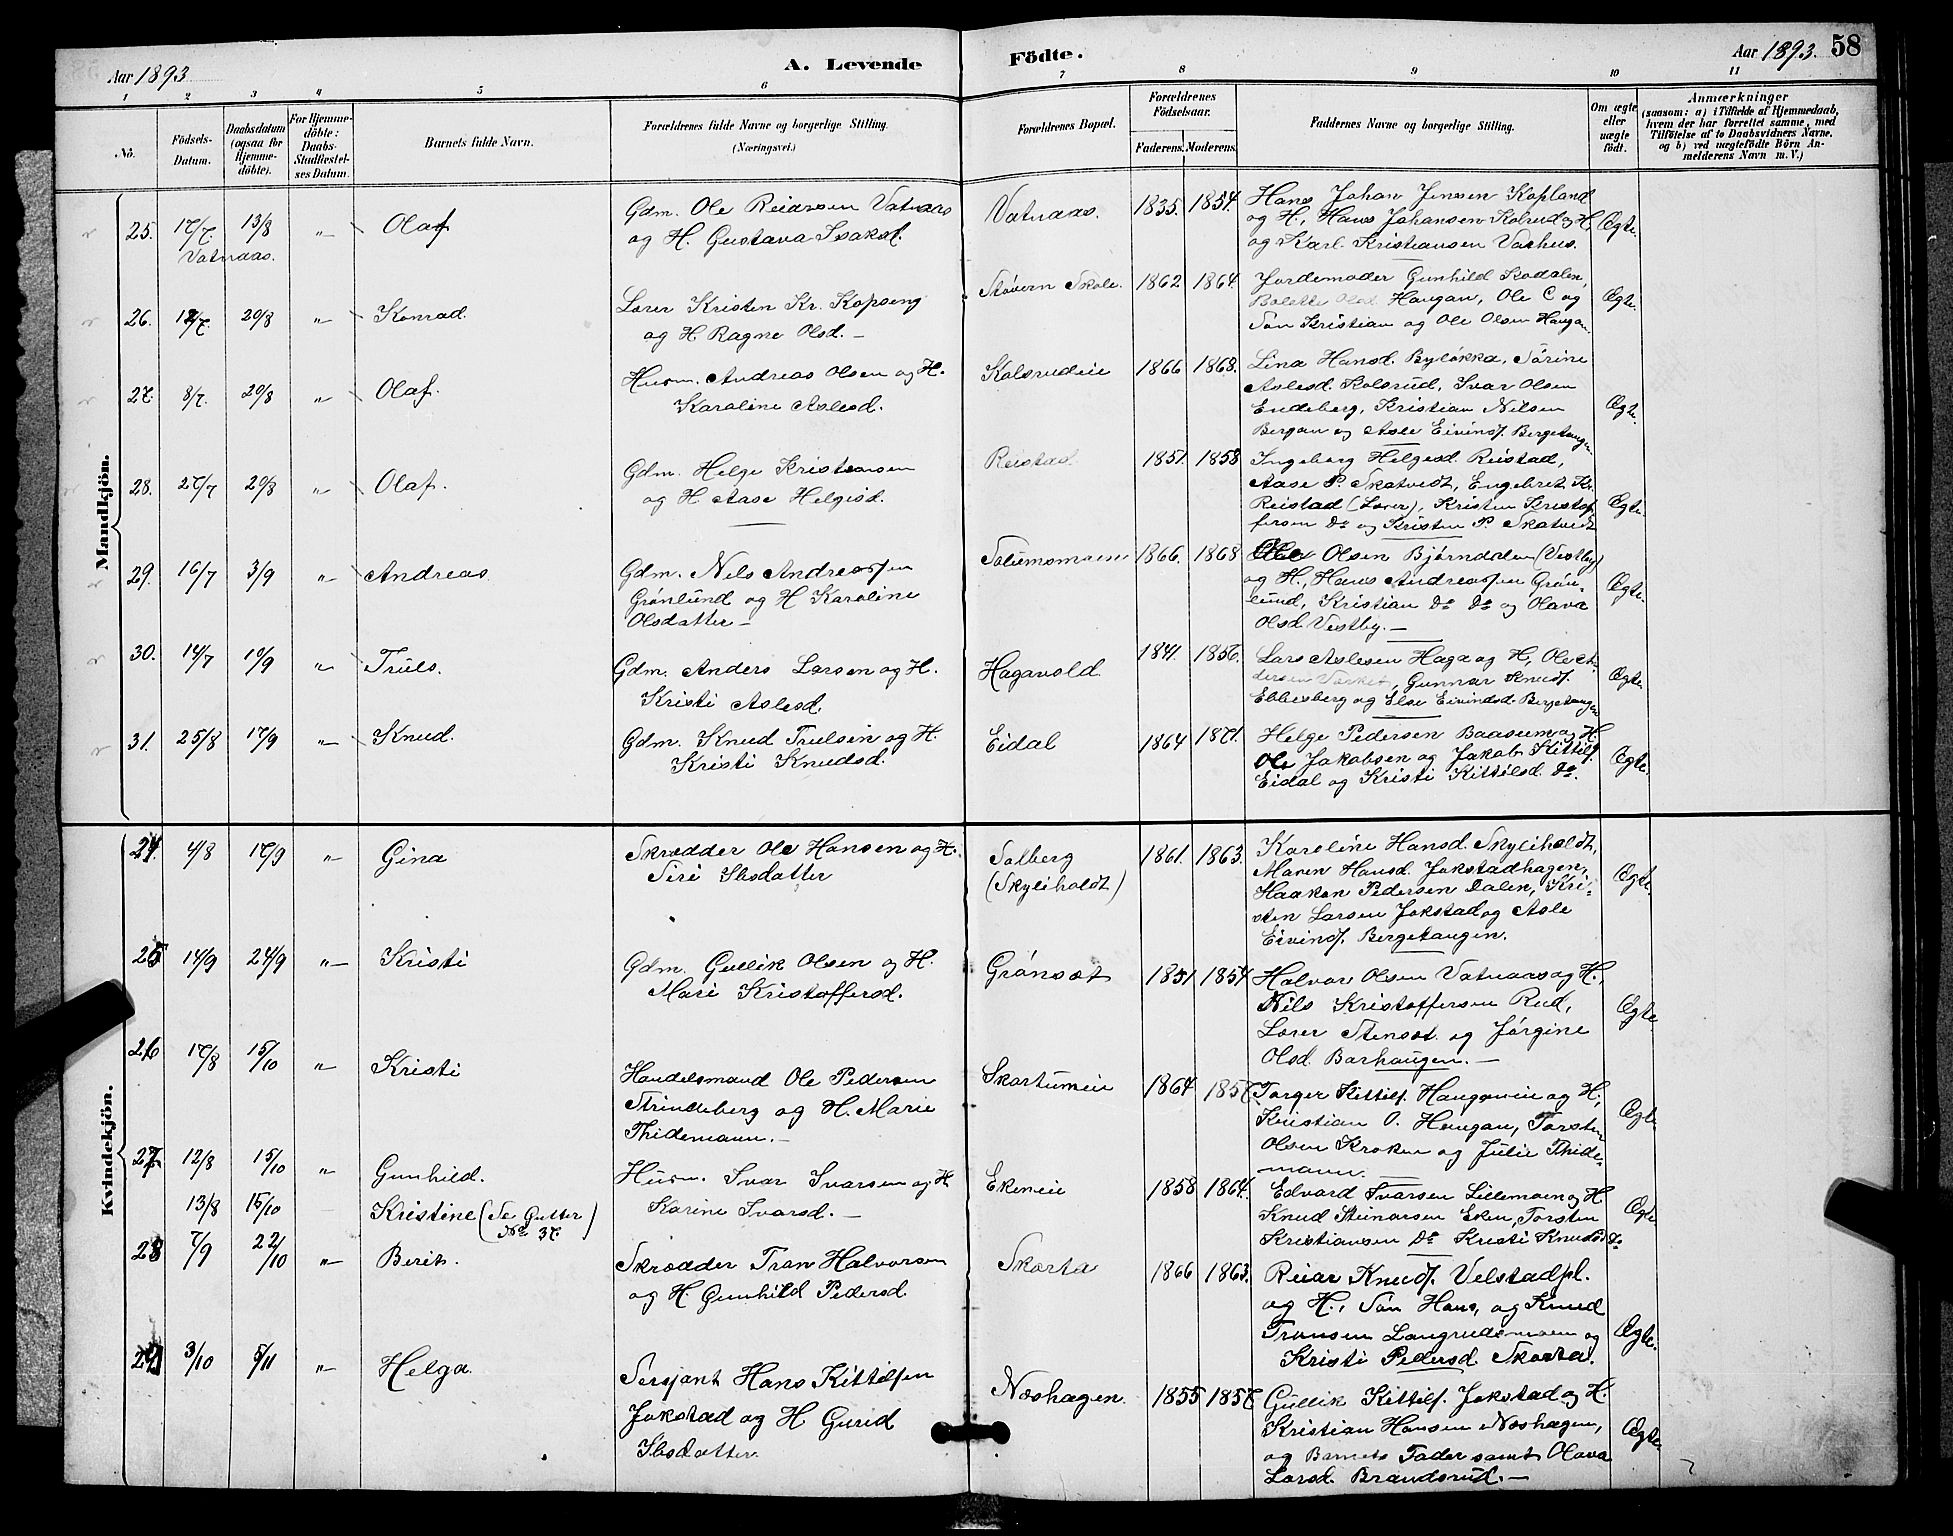 Aar 1893
A. Levende
Födte.
Aar 1893.
58
1 2 3 4 5 6 7 8 9 10 11
Nō.
Födsels-
Datum.
Daabsdatum
(ogsaa for
Hjemme-
döbte).
For Hjemme-
döbte:
Daabs-
Stadfæstel-
ses Datum.
Barnets fulde Navn.
Forældrenes fulde Navne og borgerlige Stilling.
(Næringsvei.)
Forældrenes Bopæl.
Forældrenes
Födselsaar.
Faderens. Moderens.
Faddernes Navne og borgerlige Stilling.
Om ægte
eller
uægte
født.
Anmærkninger
(saasom: a) i Tilfælde af Hjemmedaab,
hvem der har forrettet samme, med
Tilføielse af to Daabsvidners Navne,
og b) ved uægtefødte Börn An-
melderens Navn m. V.)
Mandkjön.
25. 17/7. 13/8 „ Olaf
Vatnaas.
Gdm. Ole Reiersen Vatnaas
og H. Gustava Isaksd.
Vatnaas. 1835. 1854.
Hans Johan Jensen Kopland
og H, Hans Johansen Kolsrud og H
og Karl Kristiansen Vashus.
Ægte.
26. 12/7. 20/8 „ Konrad.
Lærer Kristen Kr. Kopseng
og H Ragne Olsd. —
Støvern Skole. 1862 1864.
Jordemoder Gunhild Skodalen,
Bolette Olsd. Haugan, Ole C og
Søn Kristian og Ole Olsen Haugan
Ægte.
27. 8/7. 20/8 „ Olaf.
Husm. Andreas Olsen og H.
Karoline Aslesd.
Kolsrudeie 1866 1868.
Lina Hansd. Byløkka, Sørine
Aslesd. Kolsrud, Ivar Olsen
Endeberg, Kristian Nilsen
Bergan og Asle Eivinds. Bergetangen
Ægte.
28. 27/7 20/8 „ Olaf.
Gdm. Helge Kristensen
og H Aase Helgesd.
Reistad. 1851. 1858
Ingeborg Helgesd. Reistad,
Aase P. Skatvedt, Engebret Kr.
Reistad (Lærer), Kristen Kristof-
fersen Do og Kristen P. Skatvedt
Ægte.
29. 16/7 3/9 „ Andreas
Gdm. Nels Andreassen
Grønlund og H Karoline
Olsdatter —
Solumsmoen 1866. 1868
Ole Olsen Bjørndalen (Vestby)
og H., Hans Andreassen Grøn-
lund, Kristian Do Do og Olava
Olsd. Vestby. —
Ægte.
30. 14/7 10/9 „ Truls.
Gdm. Anders Larsen og H.
Kristi Aslesd.
Hagavold. 1841. 1856.
Lars Aslesen Haga og H, Ole An-
dersen Værket, Gunnar Knuds.
Ebbesberg og Else Eivindsd. Bergetangen
Ægte.
31. 25/8 17/9 „ Knud.
Gdm. Knud Trulsen og H.
Kristi Knudsd.
Eidal 1864 1871.
Helge Pedersen Baasum og H.
Ole Jakobsen og Jakob Kittils.
Eidal og Kristi Kittilsd. Do.
Ægte.
Kvindekjön.
24. 4/8 17/9 „ Gina
Skrædder Ole Hansen og H.
Siri Ibsdatter
Solberg
(Skyliholdt) 1861. 1863.
Karoline Hansd. Skyliholdt,
Maren Hansd. Jokstadhagen,
Haaken Pedersen Dalen, Kri-
sten Larsen Jokstad og Asle
Eivinds. Bergetangen.
Ægte.
25 14/9 24/9 „ Kristi
Gdm. Gullik Olsen og H.
Mari Kristoffersd.
Grønset 1851 1854
Halvor Olsen Vatnaas og H.,
Nils Kristoffersen Rud,
Lærer Stenset og Jørgine
Olsd. Barhaugen. —
Ægte
26 17/8 15/10 „ Kristi
Handelsmand Ole Pedersen
Strindeberg og H. Marie
Thidemann. —
Skartumeie 1864 1857.
Torger Kittils. Haugsmeie og H.,
Kristian O. Haugan, Torsten
Olsen Kroken og Julie Thide-
mann.
Ægte
27 12/8 15/10 „ Gunhild.
13/8 15/10 Kristine (Se Gutter
No 37.)
Husm. Ivar Ivarsen og H
Karine Ivarsd. —
Ekemeie 1858 1864.
Edvard Ivarsen Lillemoen og H
Knud Steinarsen Eken, Torsten
Kristiansen Do Kristi Knudsd Do
Ægte
28 7/9 22/10 „ Berit.
Skrædder Tran Halvorsen
og H. Gunhild Pedersd.
Skarta 1866 1863.
Reiar Knuds. Velstadpl.
og H., Søn Hans, og Knud
Transen Langrudsmoen og
Kristi Pedersd. Skarta.
Ægte.
29 3/10 5/11 „ Helga.
Sersjant Hans Kittilsen
Jokstad og H Gurid
Ibsdatter.
Næshagen. 1855 1857
Gullik Kittils. Jokstad og H.
Kristian Hansen Næshagen,
og Barnets Fader samt Olava
Larsd. Brandsrud. —
Ægte